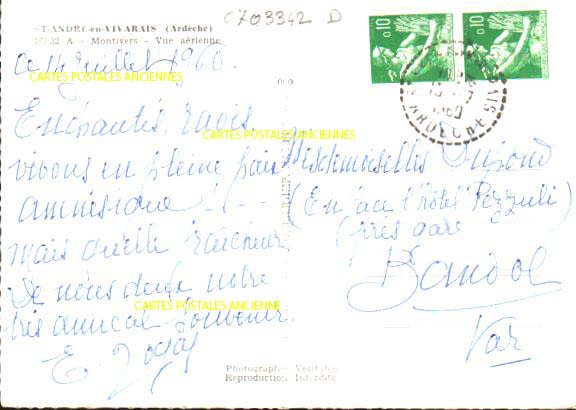 0703342 D
ST-ANDRE-en-VIVARAIS (Ardèche)
157-32 A - Montivers - Vue aérienne
0,10
0,10
ce 14 juillet 1960.
CARTES POSTALES ANCIENNES
Enchantés, ravis
CARTES POSTALES ANCIENNES
vivons en pleine paix
Mesdemoiselles
(En face l'hôtel
(près gare
Bandol
Var
mais quelle fraîcheur
De nous deux notre
CARTES POSTALES ANCIENNE
très amical souvenir
E.
Photographie Véritable
Reproduction Interdite